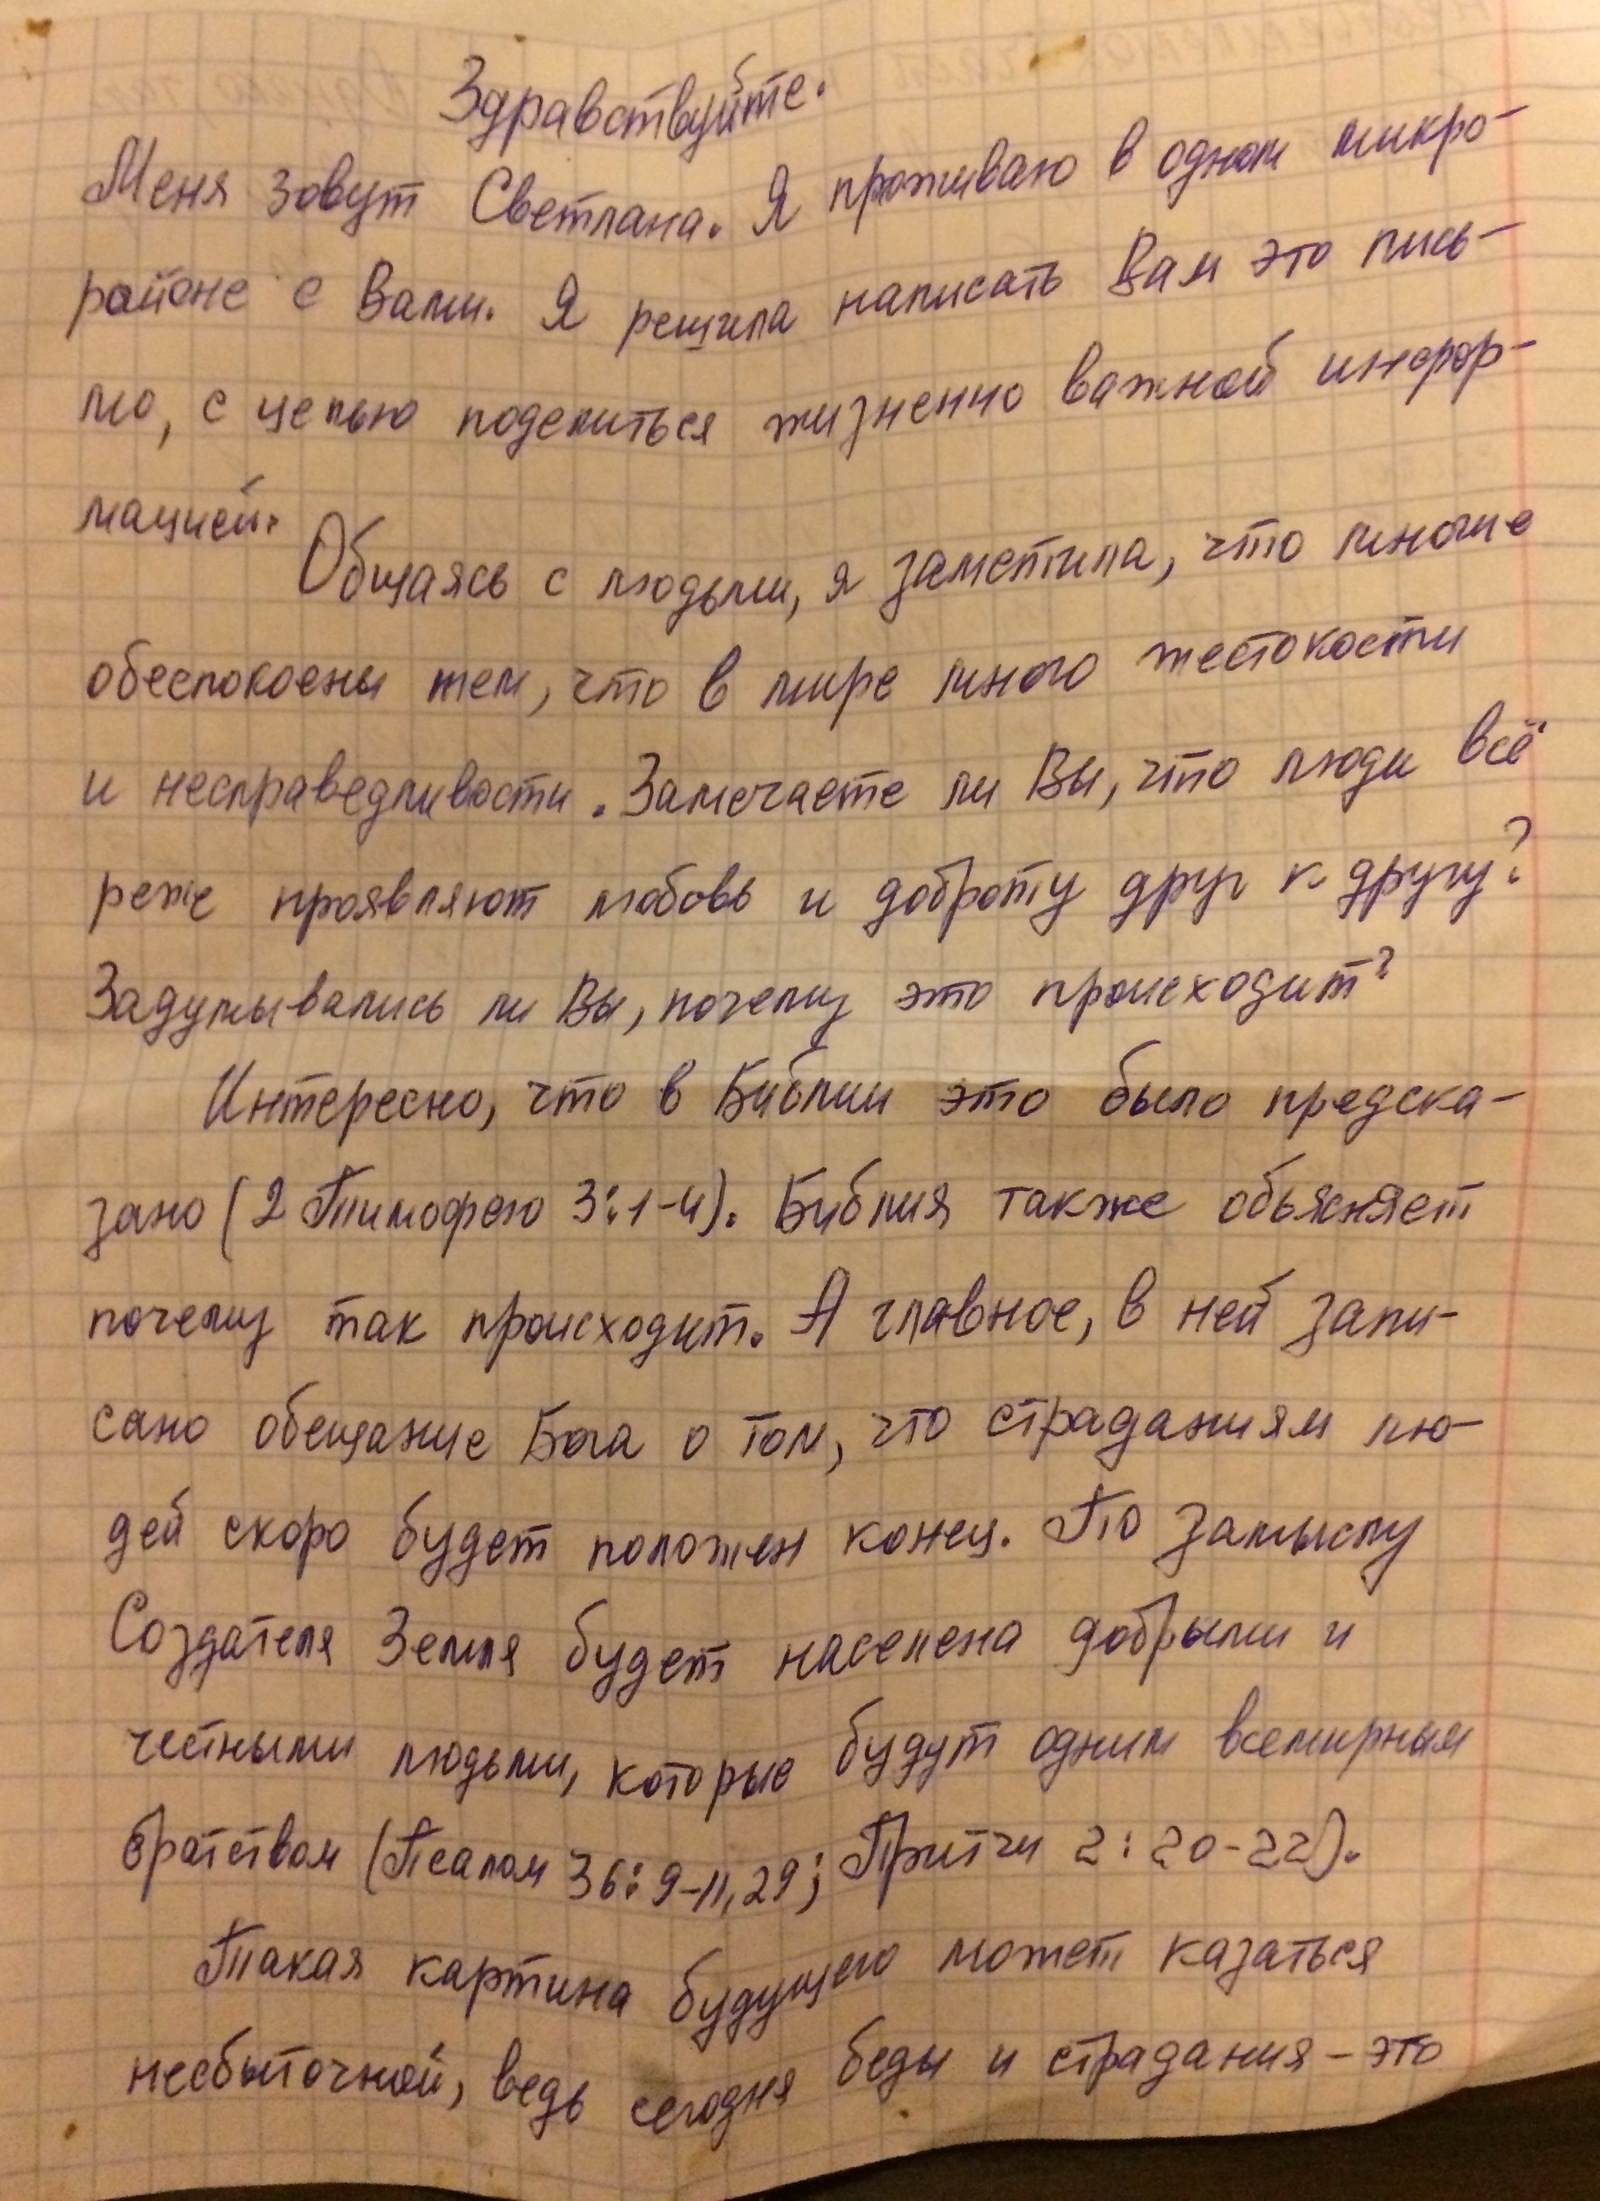 Здравствуйте.
Меня зовут Светлана. Я проживаю в одном микро-
районе с Вами. Я решила написать Вам это пись-
мо, с целью поделиться жизненно важной инфор-
мацией.
Общаясь с людьми, я заметила, что многие
обеспокоены тем, что в мире много жестокости
и несправедливости. Замечаете ли Вы, что люди всё
реже проявляют любовь и доброту друг к другу?
Задумывались ли Вы, почему это происходит?
Интересно, что в Библии это было предска-
зано (2 Тимофею 3:1-4). Библия также объясняет
почему так происходит. А главное, в ней запи-
сано обещание Бога о том, что страданиям лю-
дей скоро будет положен конец. По замыслу
Создателя Земля будет населена добрыми и
честными людьми, которые будут одним всемирным
братством (Псалом 36:9-11,29; Притчи 2:20-22).
Такая картина будущего может казаться
несбыточной, ведь сегодня беды и страдания - это